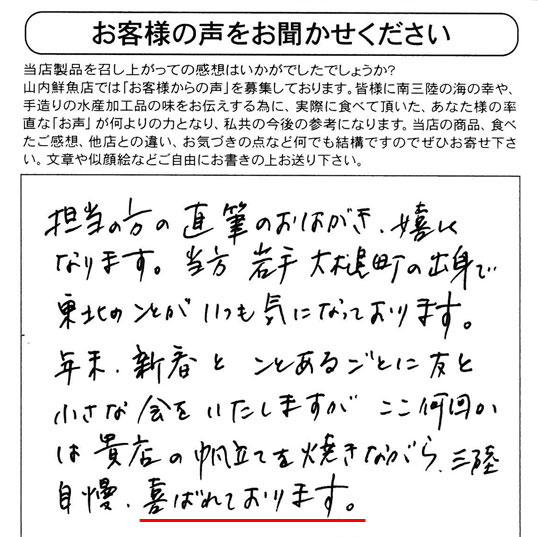 お客様の声をお聞かせください
当店製品を召し上がっての感想はいかがでしたでしょうか?
山内鮮魚店では「お客様からの声」を募集しております。皆様に南三陸の海の幸や、
手造りの水産加工品の味をお伝えする為に、実際に食べて頂いた、あなた様の率
直な「お声」が何よりの力となり、私共の今後の参考になります。当店の商品、食べ
たご感想、他店との違い、お気づきの点など何でも結構ですのでぜひお寄せ下さ
い。文章や似顔絵などご自由にお書きの上お送り下さい。
担当の方の直筆のおはがき、嬉しく
なります。当方 岩手 大槌町の出身で
東北のことがいつも気になっております。
年末、新春と ことあるごとに友と
小さな会をいたしますが ここ何回か
は貴店の帆立てを焼きながら、三陸
自慢、喜ばれております。